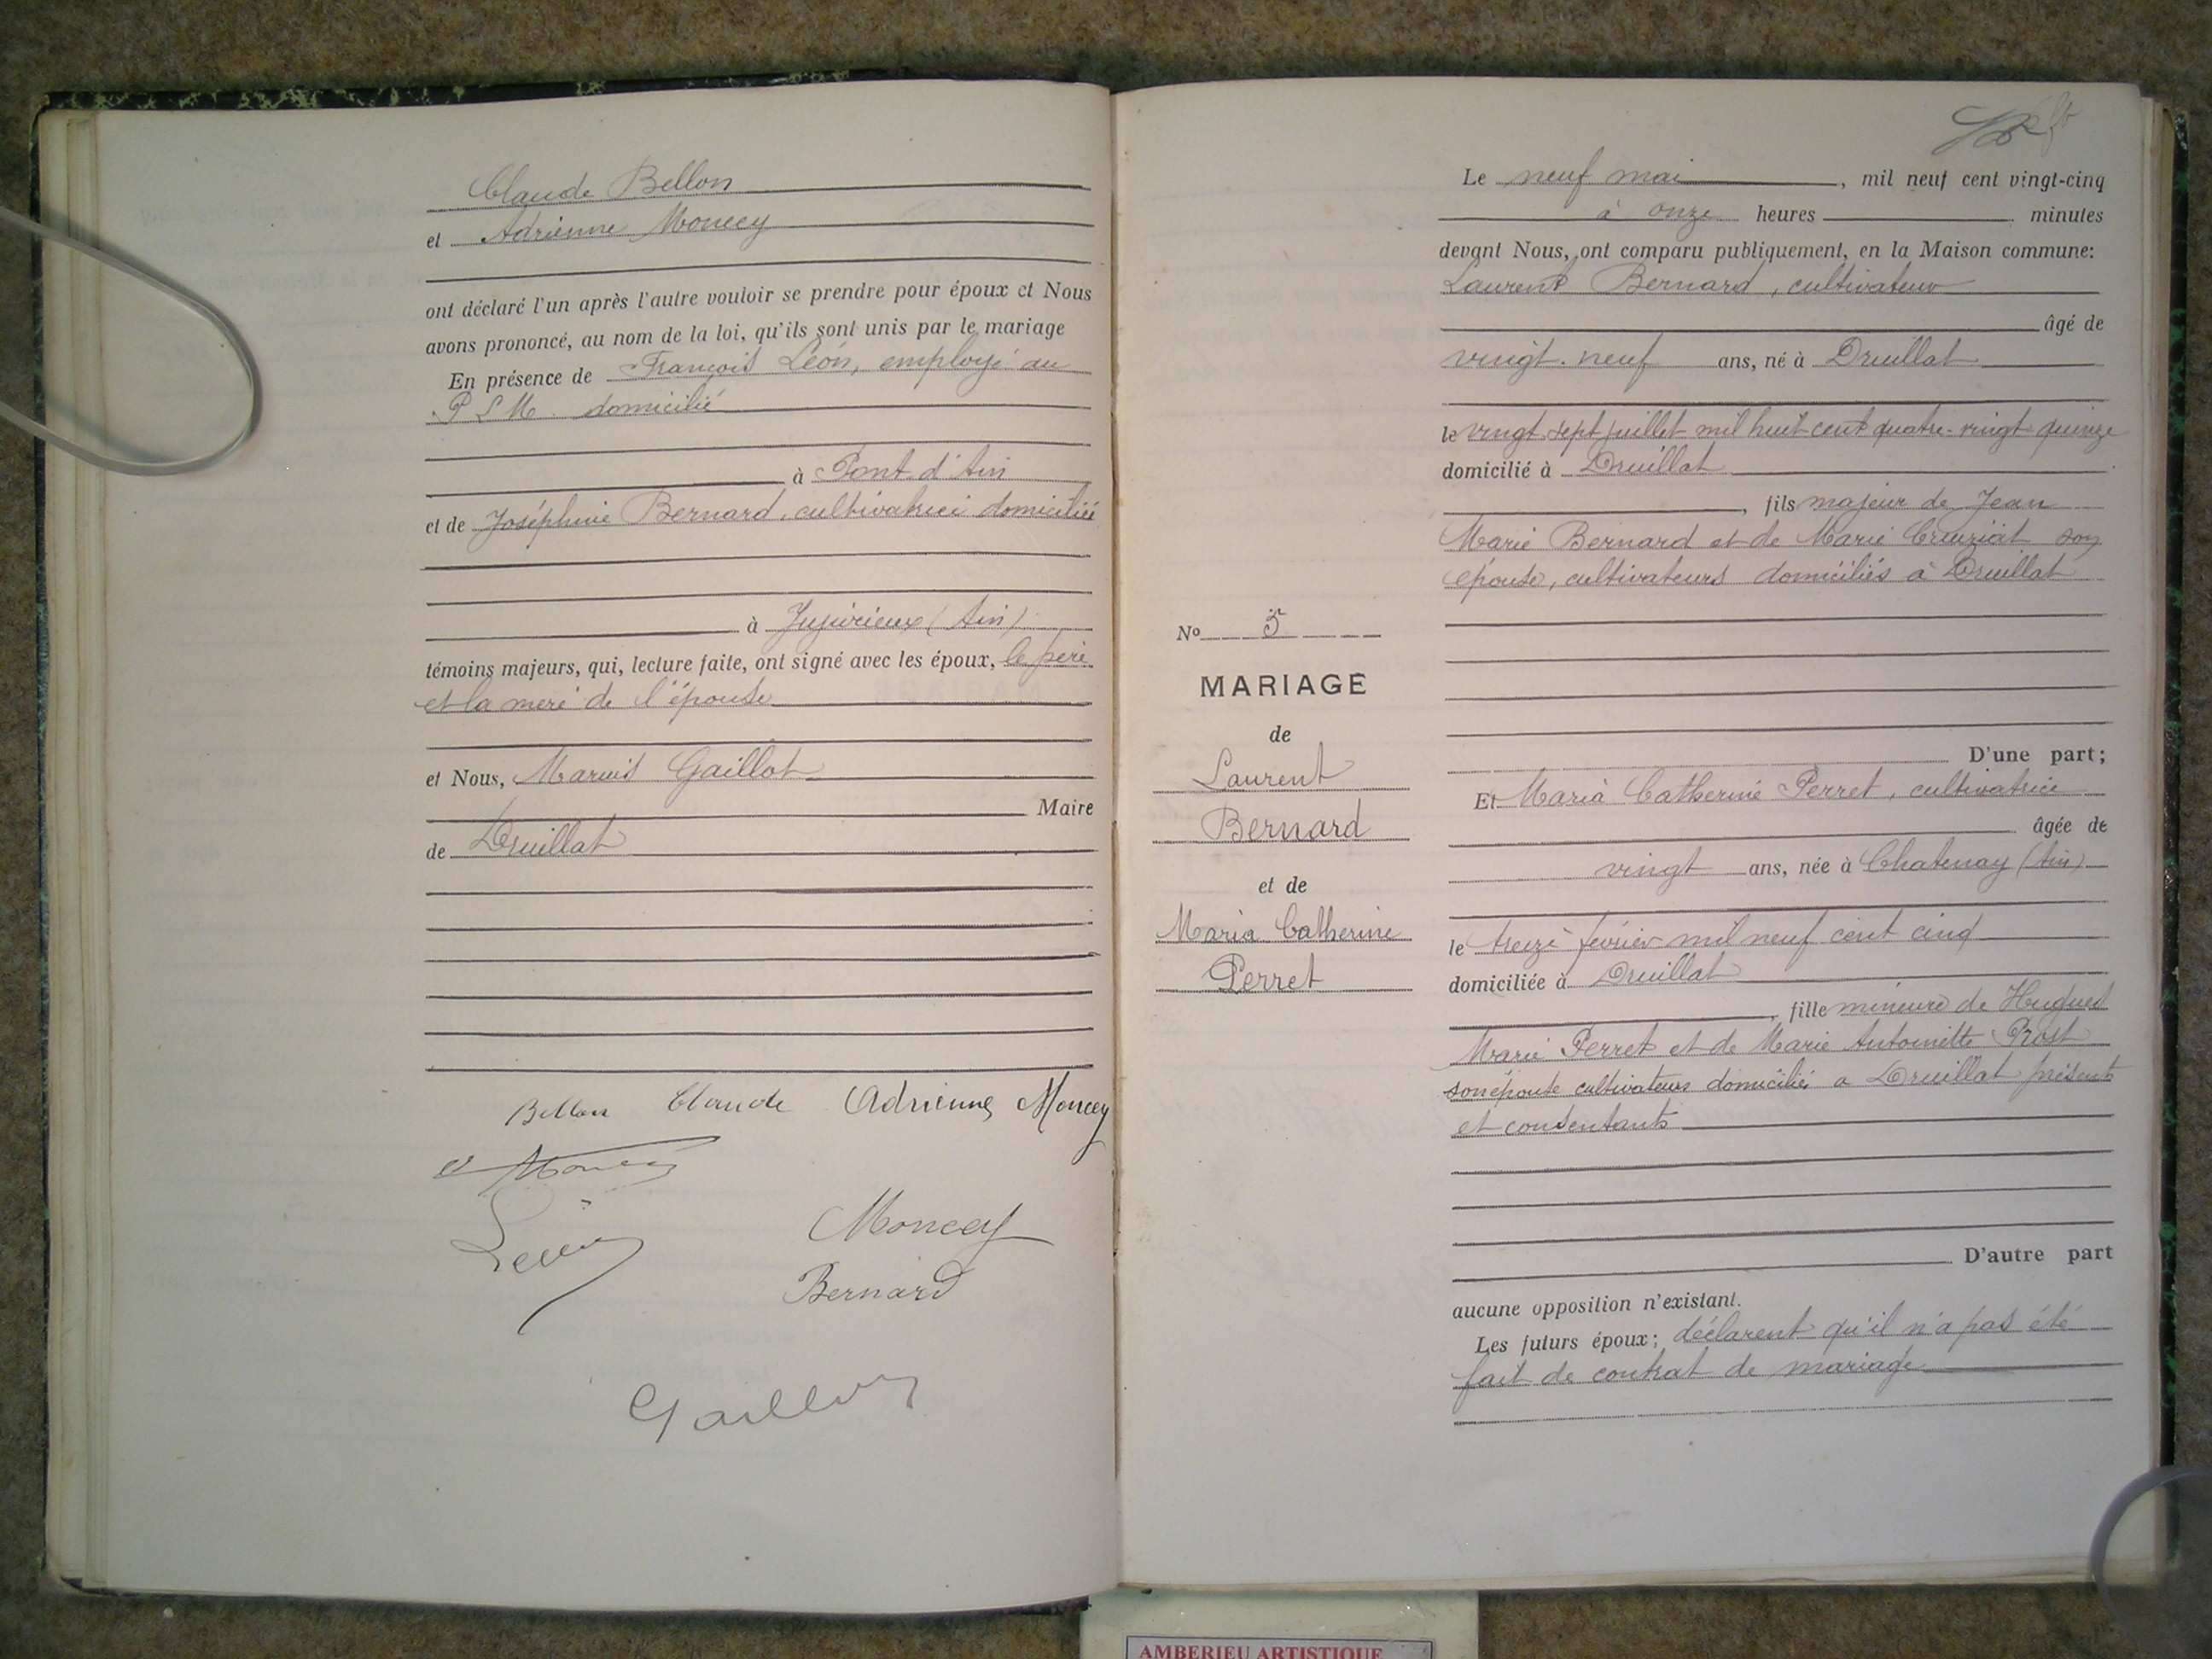 Claude Bellon
et Adrienne Moncey
ont déclaré l'un après l'autre vouloir se prendre pour époux et Nous
avons prononcé, au nom de la loi, qu'ils sont unis par le mariage
En présence de François Léon, employé au
P L M domicilié
à Pont d'Ain
et de Joséphine Bernard, cultivatrice domiciliée
à Jujurieux (Ain)
témoins majeurs, qui, lecture faite, ont signé avec les époux, le père
et la mère de l'épouse
et Nous, Marius Gaillot
Maire
de Druillat
Bellon Claude Adrienne Moncey
Moncey
Léon
Moncey
Bernard
Gaillot
Le neuf mai, mil neuf cent vingt-cinq
à onze heures minutes
devant Nous, ont comparu publiquement, en la Maison commune:
Laurent Bernard, cultivateur
âgé de
vingt-neuf ans, né à Druillat
le vingt sept juillet mil huit cent quatre-vingt quinze
domicilié à Druillat
, fils majeur de Jean
Marie Bernard et de Marie Cruiziat son
épouse, cultivateurs domiciliés à Druillat
No 5
MARIAGE
de
Laurent
Bernard
et de
Maria Catherine
Perret
D'une part;
Et Maria Catherine Perret, cultivatrice
âgée de
vingt ans, née à Chatenay (Ain)
le treize février mil neuf cent cinq
domiciliée à Druillat
, fille mineure de Hugues
Marie Perret et de Marie Antoinette Prost
son épouse cultivateurs domiciliés a Druillat présents
et consentants
D'autre part
aucune opposition n'existant.
Les futurs époux; déclarent qu'il n'a pas été
fait de contrat de mariage
AMBERIEU ARTISTIQUE